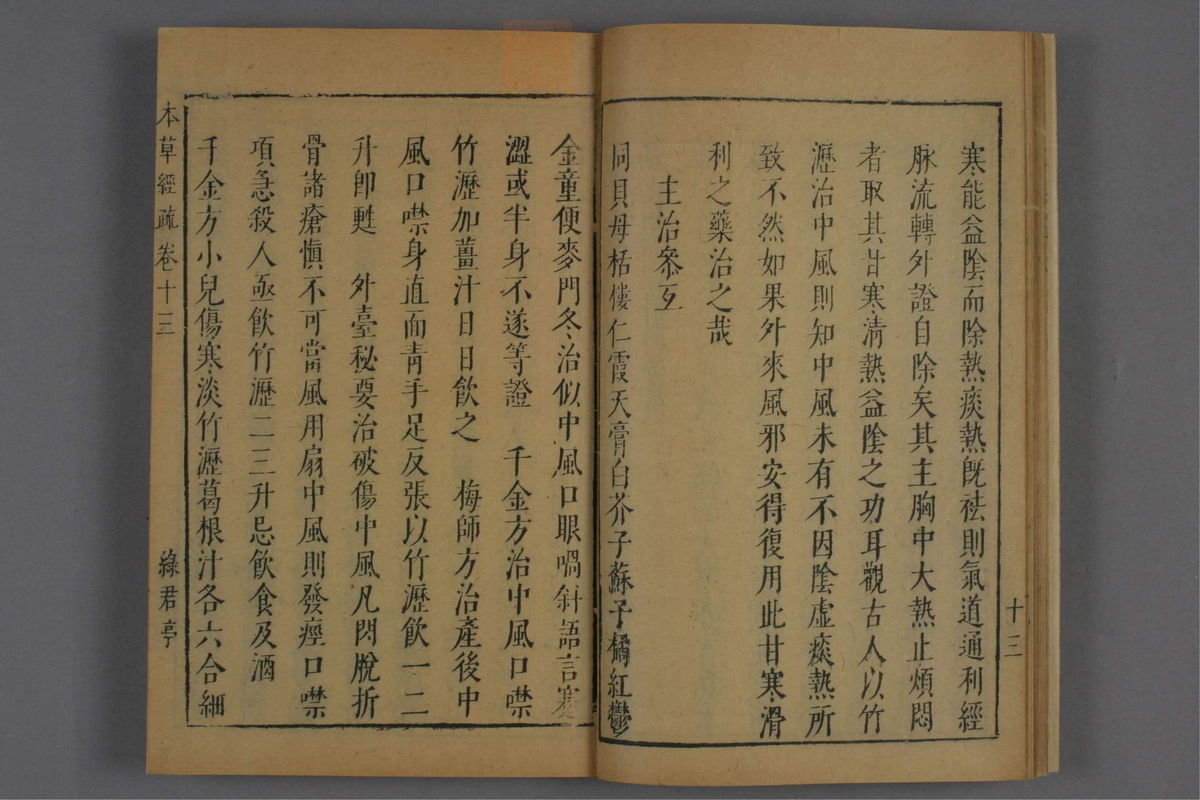 寒能益陰而除熱痰熱旣祛則氣道通利經
脉流轉外證自除矣其主胸中大熱止煩悶
者取其甘寒清熱益陰之功耳觀古人以竹
瀝治中風則知中風未有不因陰虛痰熱所
致不然如果外來風邪安得復用此甘寒滑
利之藥治之哉
主治叅互
同貝母栝樓仁霞天膏白芥子蘇子橘紅鬱
十三
金童便麥門冬治似中風口眼喎斜語言蹇
澀或半身不遂等證 千金方治中風口噤
竹瀝加薑汁日日飲之 梅師方治產後中
風口噤身直而靑手足反張以竹瀝飲一二
升卽甦 外臺秘要治破傷中風凡閃脫折
骨諸瘡愼不可當風用扇中風則發痙口噤
項急殺人亟飮竹瀝二三升忌飮食及酒
千金方小兒傷寒淡竹瀝葛根汁各六合細
本草經疏卷十三
綠君亭